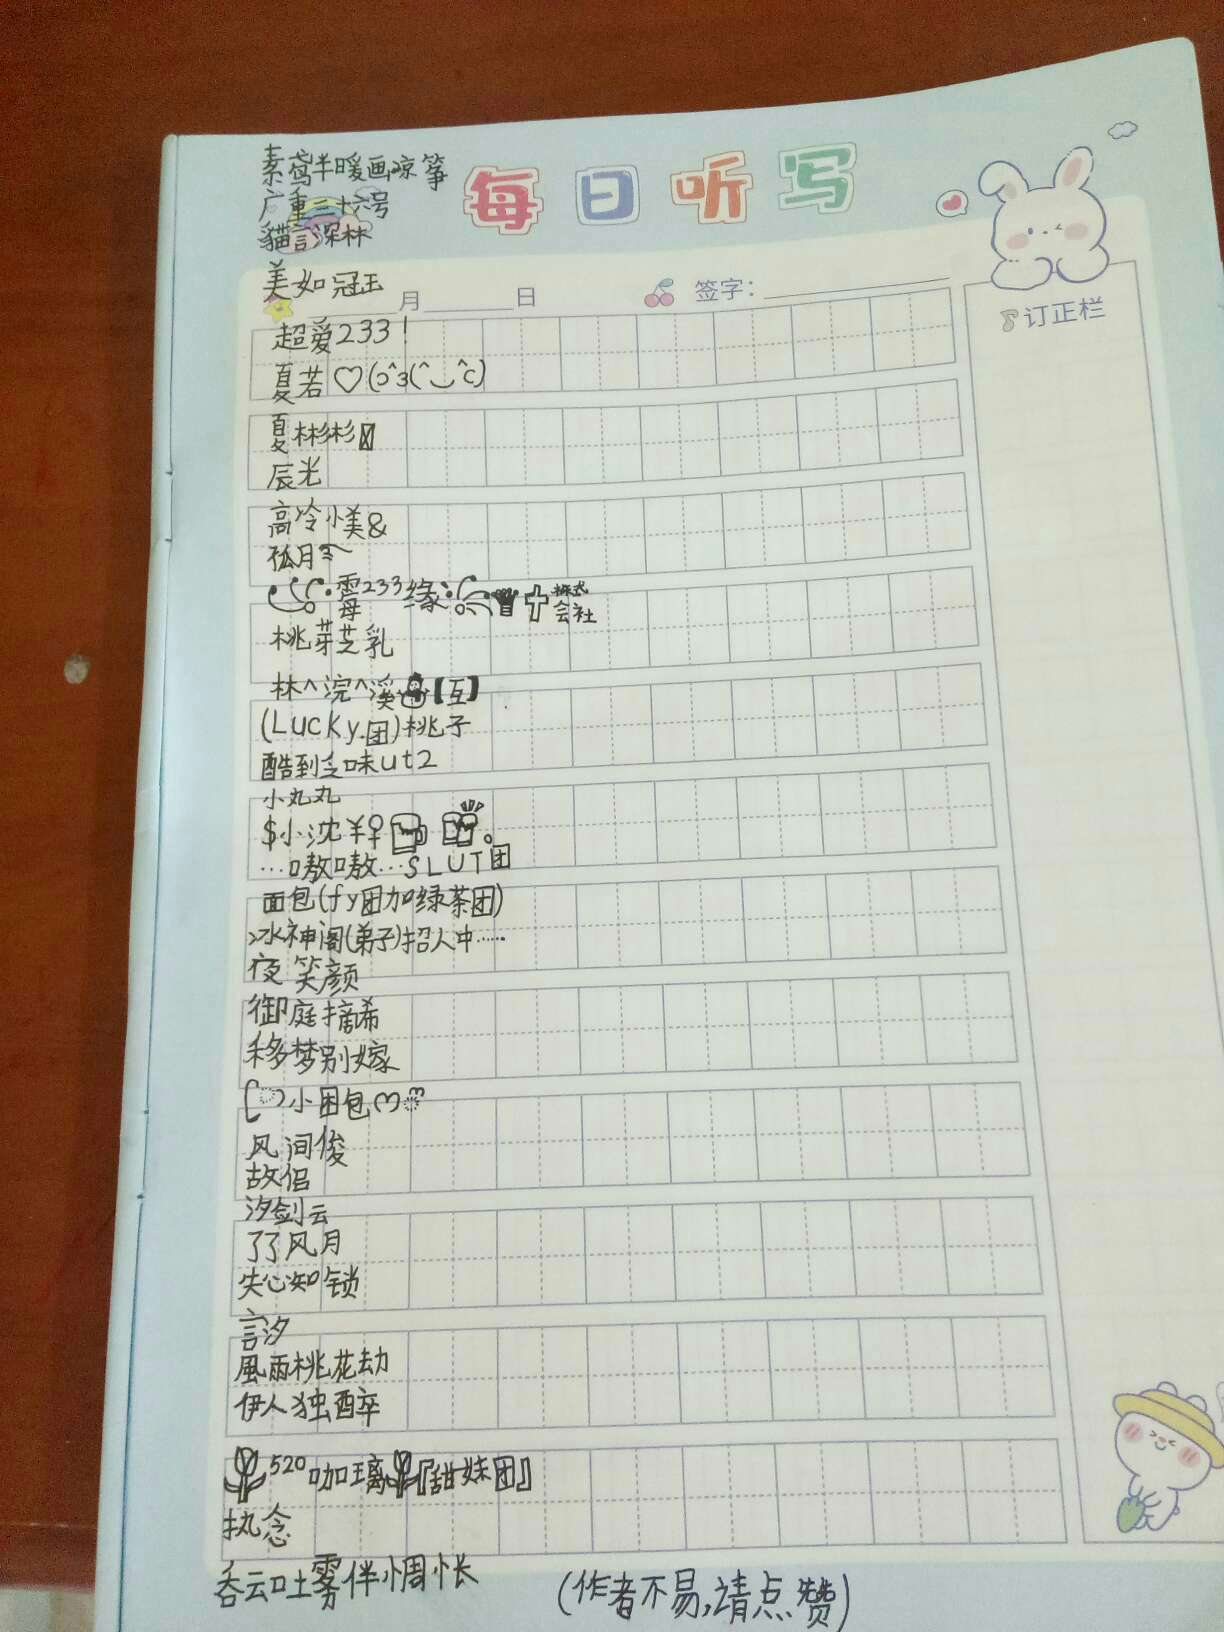 每日听写
素鸢半暖画凉筝
广重三十六号
貓言深林
美如冠玉
月 日 签字:
订正栏
超爱233!
夏若♡(ɔˆ3(ˆ‿ˆc)
夏彬彬
辰光
高冷小美&
孤月
霉233缘 株式会社
桃芽芝乳
林^浣^溪【互】
(Lucky.团)桃子
酷到乏味ut2
小丸丸
$小沈¥♀🍺🍻。
…嗷嗷…SLUT团
面包(fy团加绿茶团)
冰神阁(弟子)招人中……
夜笑颜
御庭摘希
移梦别嫁
小困包
风间俊
故侣
汐剑云
了了风月
失心知锁
言汐
風雨桃花劫
伊人独醉
🌷520咖璃🌷『甜妹团』
执念
吞云吐雾伴惆怅
(作者不易,请点赞)